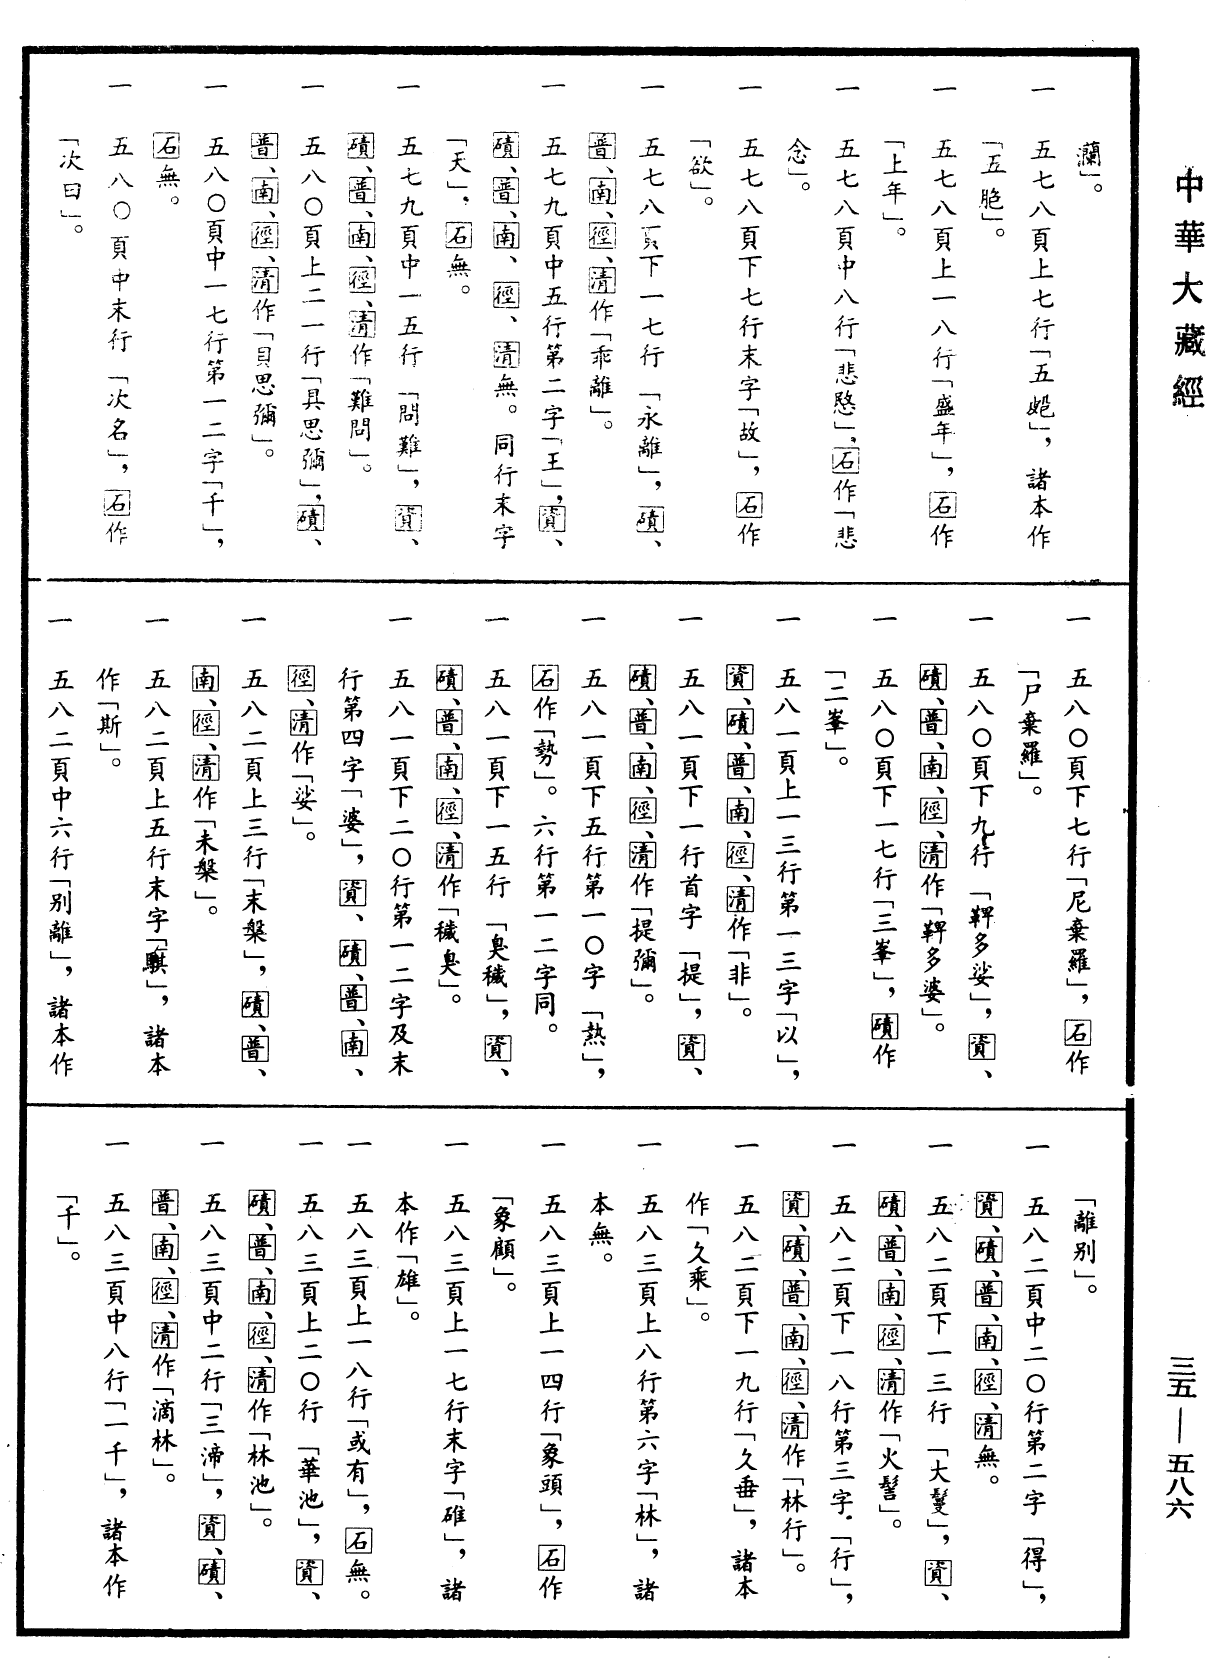 中華大藏經
三五—五八六
瀾」。
一 五七八頁上七行「五㚇」，諸本作
「五脆」。
一 五七八頁上一八行「盛年」，石作
「上年」。
一 五七八頁中八行「悲愍」，石作「悲
念」。
一 五七八頁下七行末字「故」，石作
「欲」。
一 五七八頁下一七行「永離」，磧、
普、南、徑、清作「乖離」。
一 五七九頁中五行第二字「王」，資、
磧、普、南、徑、清無。同行末字
「天」，石無。
一 五七九頁中一五行「問難」，資、
磧、普、南、徑、清作「難問」。
一 五八〇頁上二一行「具思彌」，磧、
普、南、徑、清作「貝思彌」。
一 五八〇頁中一七行第一二字「千」，
石無。
一 五八〇頁中末行「次名」，石作
「次曰」。
一 五八〇頁下七行「尼棄羅」，石作
「尸棄羅」。
一 五八〇頁下九行「鞞多娑」，資、
磧、普、南、徑、清作「鞞多婆」。
一 五八〇頁下一七行「三峯」，磧作
「二峯」。
一 五八一頁上一三行第一三字「以」，
資、磧、普、南、徑、清作「非」。
一 五八一頁下一行首字「提」，資、
磧、普、南、徑、清作「提彌」。
一 五八一頁下五行第一〇字「熱」，
石作「勢」。六行第一二字同。
一 五八一頁下一五行「臭穢」，資、
磧、普、南、徑、清作「穢臭」。
一 五八一頁下二〇行第一二字及末
行第四字「婆」，資、磧、普、南、
徑、清作「娑」。
一 五八二頁上三行「末槃」，磧、普、
南、徑、清作「未槃」。
一 五八二頁上五行末字「騏」，諸本
作「斯」。
一 五八二頁中六行「別離」，諸本作
「離別」。
一 五八二頁中二〇行第二字「得」，
資、磧、普、南、徑、清無。
一 五八二頁下一三行「大鬘」，資、
磧、普、南、徑、清作「火髻」。
一 五八二頁下一八行第三字「行」，
資、磧、普、南、徑、清作「林行」。
一 五八二頁下一九行「久垂」，諸本
作「久乘」。
一 五八三頁上八行第六字「林」，諸
本無。
一 五八三頁上一四行「象頭」，石作
「象顧」。
一 五八三頁上一七行末字「碓」，諸
本作「雄」。
一 五八三頁上一八行「或有」，石無。
一 五八三頁上二〇行「華池」，資、
磧、普、南、徑、清作「林池」。
一 五八三頁中二行「三渧」，資、磧、
普、南、徑、清作「滴林」。
一 五八三頁中八行「一千」，諸本作
「千」。